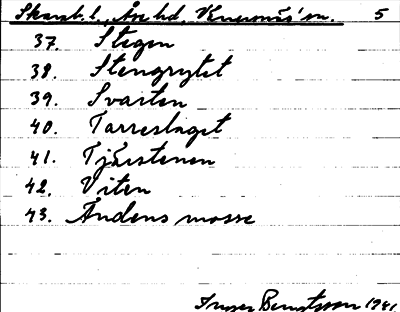 Skarab. l., Åse hd, 5
37. Stegen
38. Stengrytet
39. Svarten
40. Tarreslaget
41. Tjärstenen
42. Viten
43. Andens mosse
Inger Bengtsson 1981